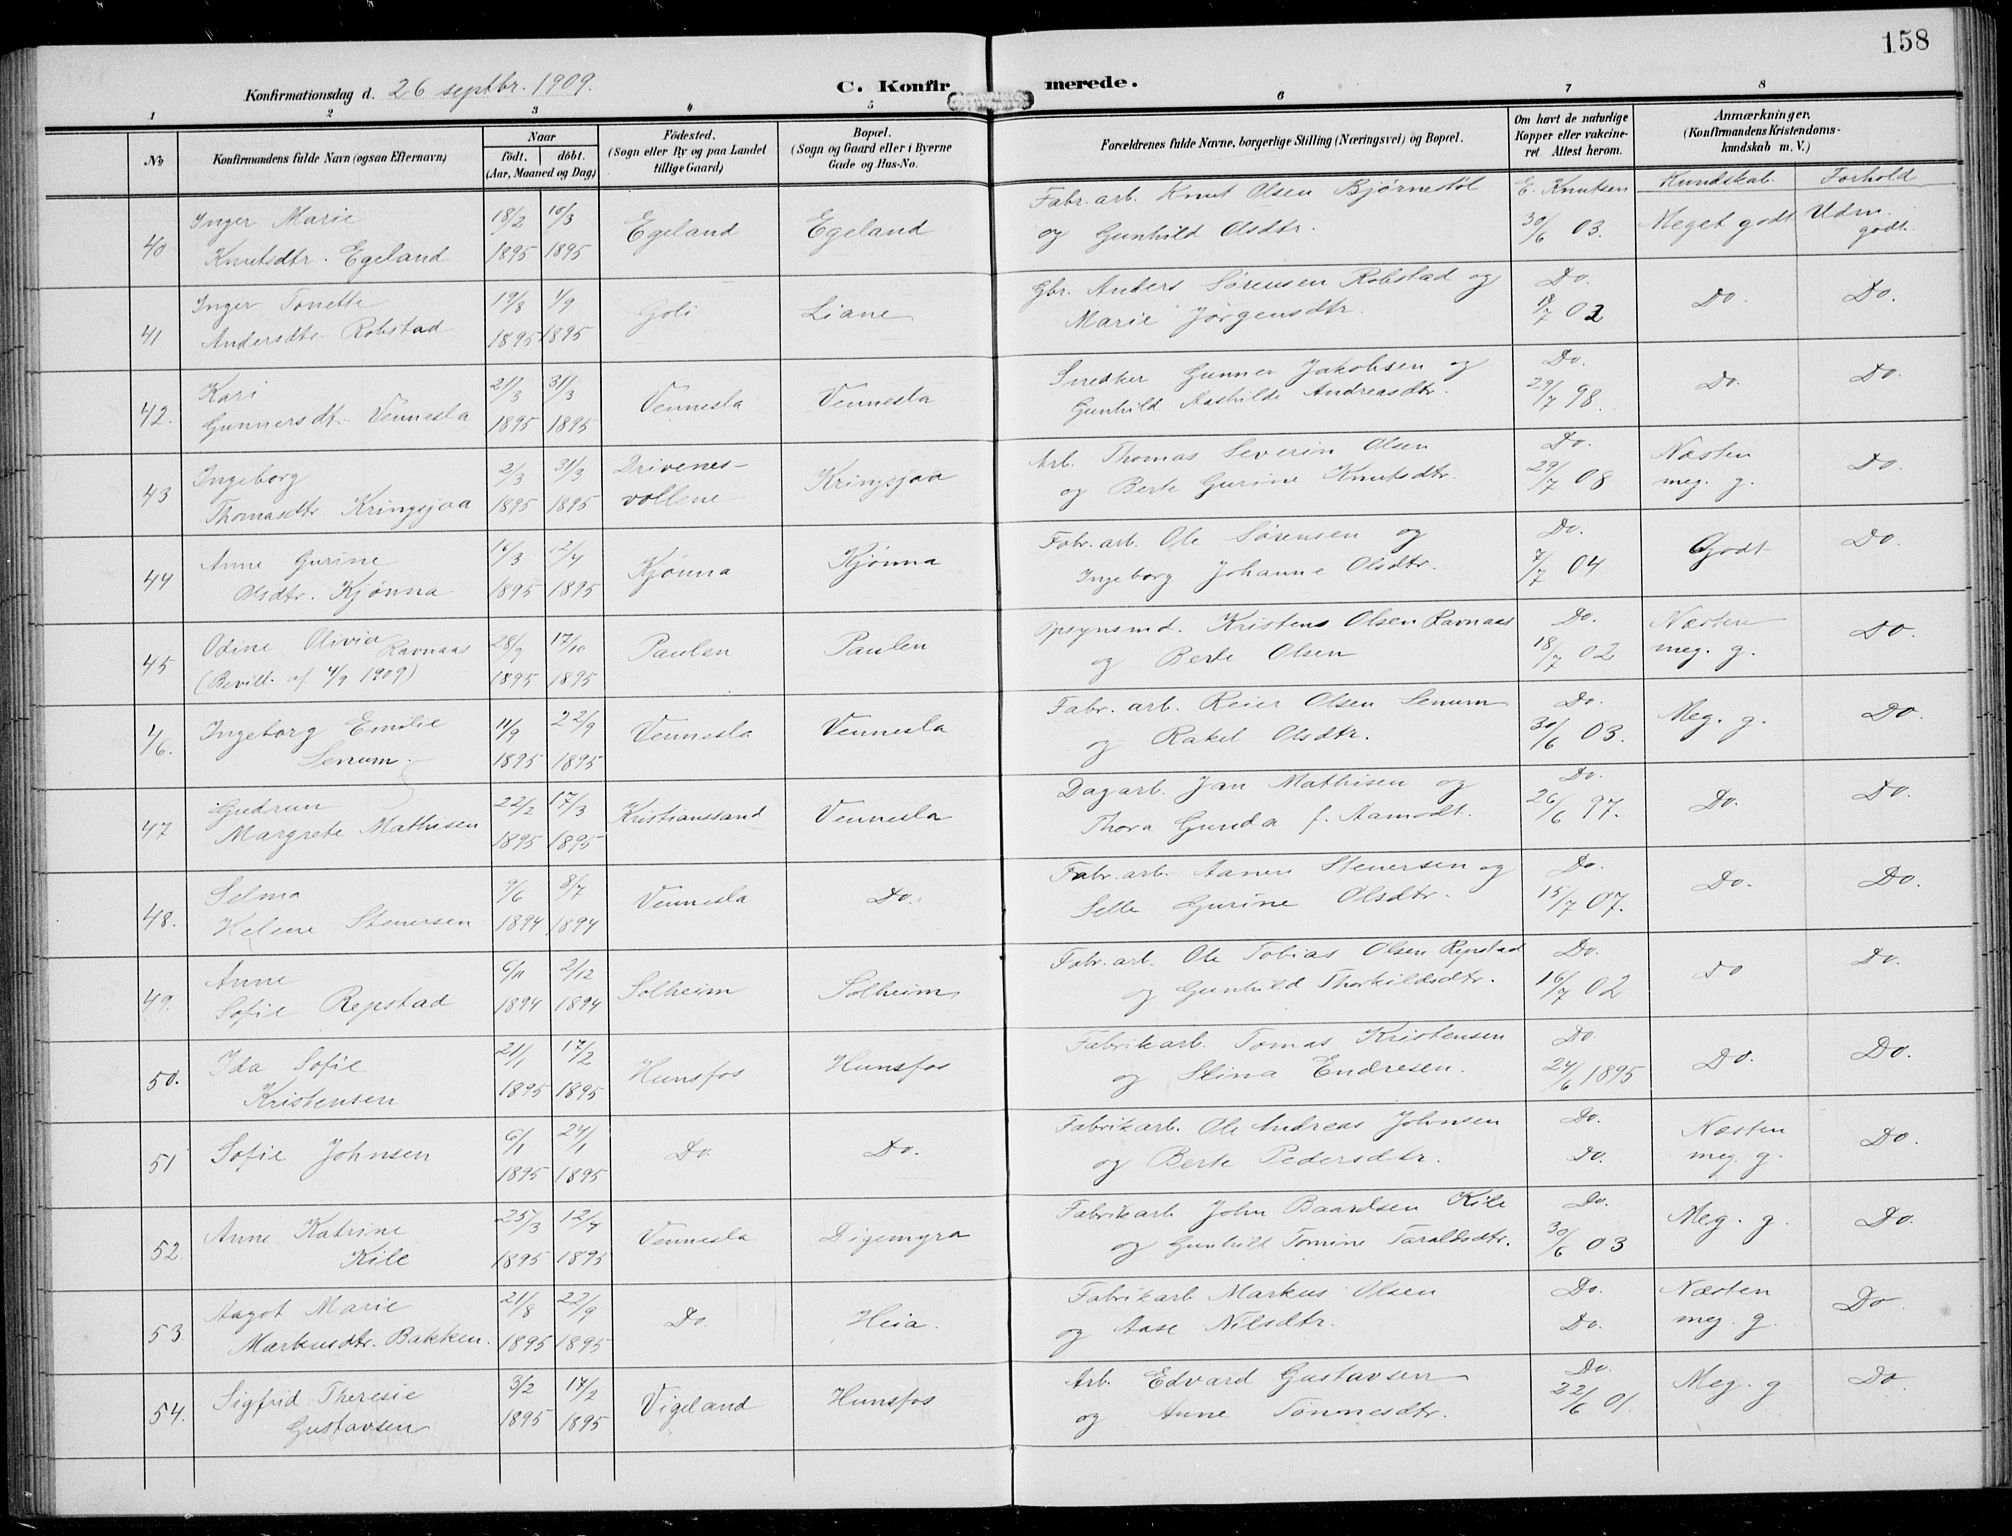 158
Konfirmationsdag d. 26 septbr. 1909.
C. Konfirmerede.
1 2 3 4 5 6 7 8
No
Konfirmandens fulde Navn (ogsaa Efternavn)
Naar
født. døbt.
(Aar, Maaned og Dag)
Fødested.
(Sogn eller By og paa Landet
tillige Gaard)
Bopæl.
(Sogn og Gaard eller i Byerne
Gade og Hus-No.
Forældrenes fulde Navne, borgerlige Stilling (Næringsvei) og Bopæl.
Om havt de naturlige
Kopper eller vakcine-
ret Attest herom.
Anmærkninger,
(Konfirmandens Kristendoms-
kundskab m. V.)
Kundskab. Forhold
40 Inger Marie 18/2 10/3 Egeland Egeland Fabr. arb. Knut Olsen Bjørnestøl E. Knutsen Meget godt Udm.
Knutsdtr. Egeland 1895 1895 og Gunhild Olsdtr. 30/6 03. godt.
41 Inger Tonette 19/8 1/9 Goli Liane Gbr. Anders Sørensen Robstad og Do. Do. Do.
Andersdtr. Robstad 1895 1895 Marie Jørgensdtr. 18/7 02
42. Kari 21/3 31/3 Vennesla Vennesla Snedker Gunner Jakobsen og Do. Do. Do.
Gunnersdtr. Vennesla 1895 1895 Gunhild Aashilde Andreasdtr. 29/7 98.
43 Ingeborg 2/3 31/3 Drivenes- Kringsjaa Arb. Thomas Severin Olsen Do. Næsten Do.
Thomasdtr. Kringsjaa 1895 1895 vollene og Berte Gurine Knutsdtr. 29/7 08 meg. g.
44 Anne Gurine 16/3 12/4 Kjønna Kjønna Fabr. arb. Ole Sørensen og Do. Godt Do.
Olsdtr. Kjønna 1895 1895 Ingeborg Johanne Olsdtr. 7/7 04
45 Odine Olivia Ravnaas 28/9 17/10 Paulen Paulen Opsynsmd. Kristens Olsen Ravnaas Do. Næsten Do.
(Bevill. af 4/9 1909) 1895 1895 og Berte Olsen 18/7 02 meg. g.
46. Ingeborg Emilie 11/9 22/9 Vennesla Vennesla Fabr. arb. Reier Olsen Senum Do. Meg. g. Do.
Senum. 1895 1895 og Rakel Olsdtr. 30/6 03.
47 Gudrun 22/2 17/3 Kristianssand Vennesla Dagarb. Jan Mathisen og Do. Do. Do.
Margrete Mathisen 1895 1895 Thora Gunda f. Aamodt. 26/6 97.
48. Selma 9/6 8/7 Vennesla Do. Fabr. arb. Aanen Stenersen og Do. Do. Do.
Helene Stenersen 1894 1894 Selle Gurine Olsdtr. 15/7 07.
49. Anne 6/11 2/12 Solheim Solheim Fabr. arb. Ole Tobias Olsen Repstad Do. Do Do.
Sofie Repstad 1894 1894 og Gunhild Thorkildsdtr. 16/7 02
50. Ida Sofie 21/1 17/2 Hunsfos Hunsfos Fabrikarb. Tomas Kristensen Do. Do. Do.
Kristensen 1895 1895 og Stina Endresen. 24/6 1895
51 Sofie Johnsen 6/1 24/1 Do. Do. Fabrikarb. Ole Andreas Johnsen Do. Næsten Do.
1895 1895 og Berte Pedersdtr. Do. meg. g.
52. Anne Katrine 25/3 12/4 Vennesla Digemyra Fabrikarb. John Baardsen Kile Do. Meg. g. Do.
Kile 1895 1895 og Gunhild Tomine Taraldsdtr. 30/6 03
53. Aagot Marie 21/8 22/9 Do. Heia. Fabrikarb. Markus Olsen Do. Næsten Do
Markusdtr. Bakken. 1895 1895 og Aase Nilsdtr. Do. meg. g.
54. Sigfrid Theresie 3/2 17/2 Vigeland Hunsfos Arb. Edvard Gustavsen Do. Meg. g Do
Gustavsen 1895 1895 og Anne Tønnesdtr. 22/6 01.